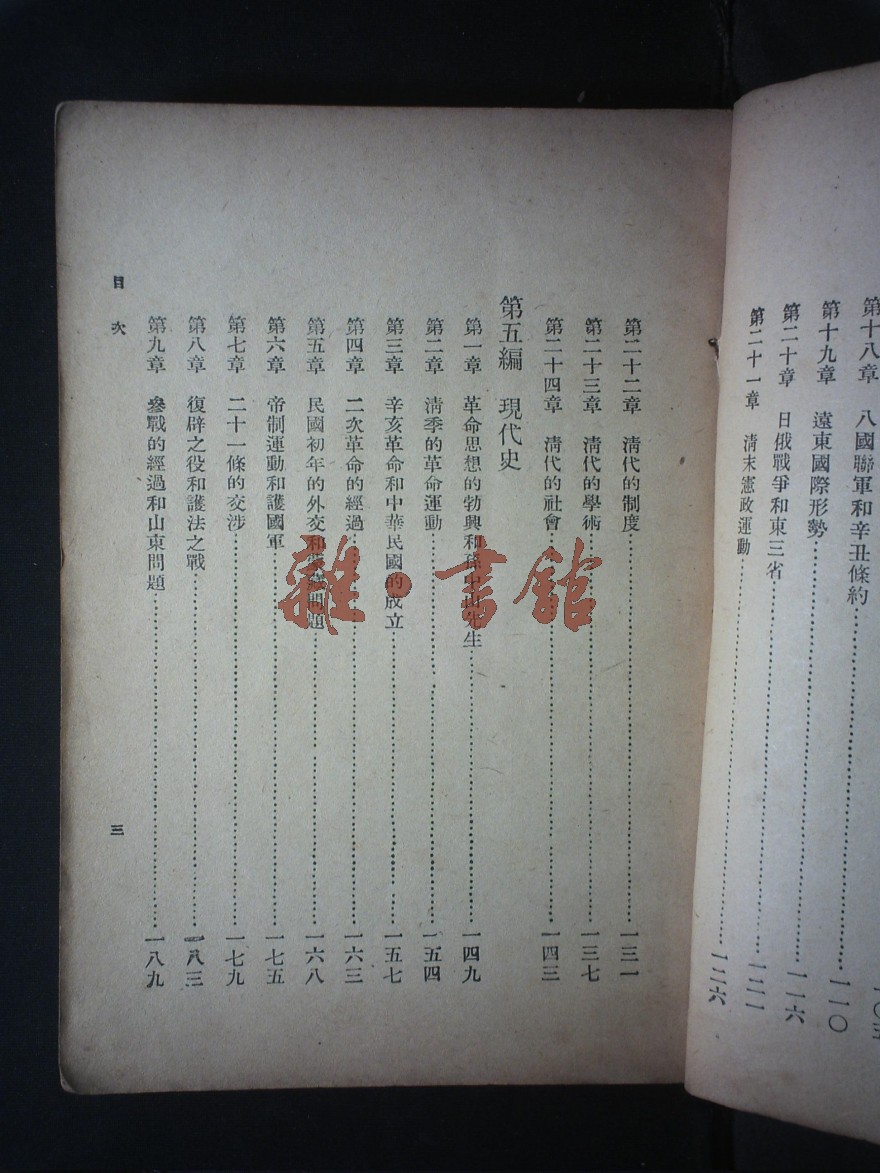 第十八章　八國聯軍和辛丑條約………
第十九章　遠東國際形勢………一一〇
第二十章　日俄戰爭和東三省………一一六
第二十一章　淸末憲政運動………一二一
一二六
第二十二章　淸代的制度………一三一
第二十三章　淸代的學術………一三七
第二十四章　淸代的社會………一四三
第五編　現代史
第一章　革命思想的勃興和孫中山先生………一四九
第二章　淸季的革命運動………一五四
第三章　辛亥革命和中華民國的成立………一五七
第四章　二次革命的經過………一六三
第五章　民國初年的外交和蒙藏問題………一六八
第六章　帝制運動和護國軍………一七五
第七章　二十一條的交涉………一七九
第八章　復辟之役和護法之戰………一八三
第九章　參戰的經過和山東問題………一八九
目次
三
雜·書館